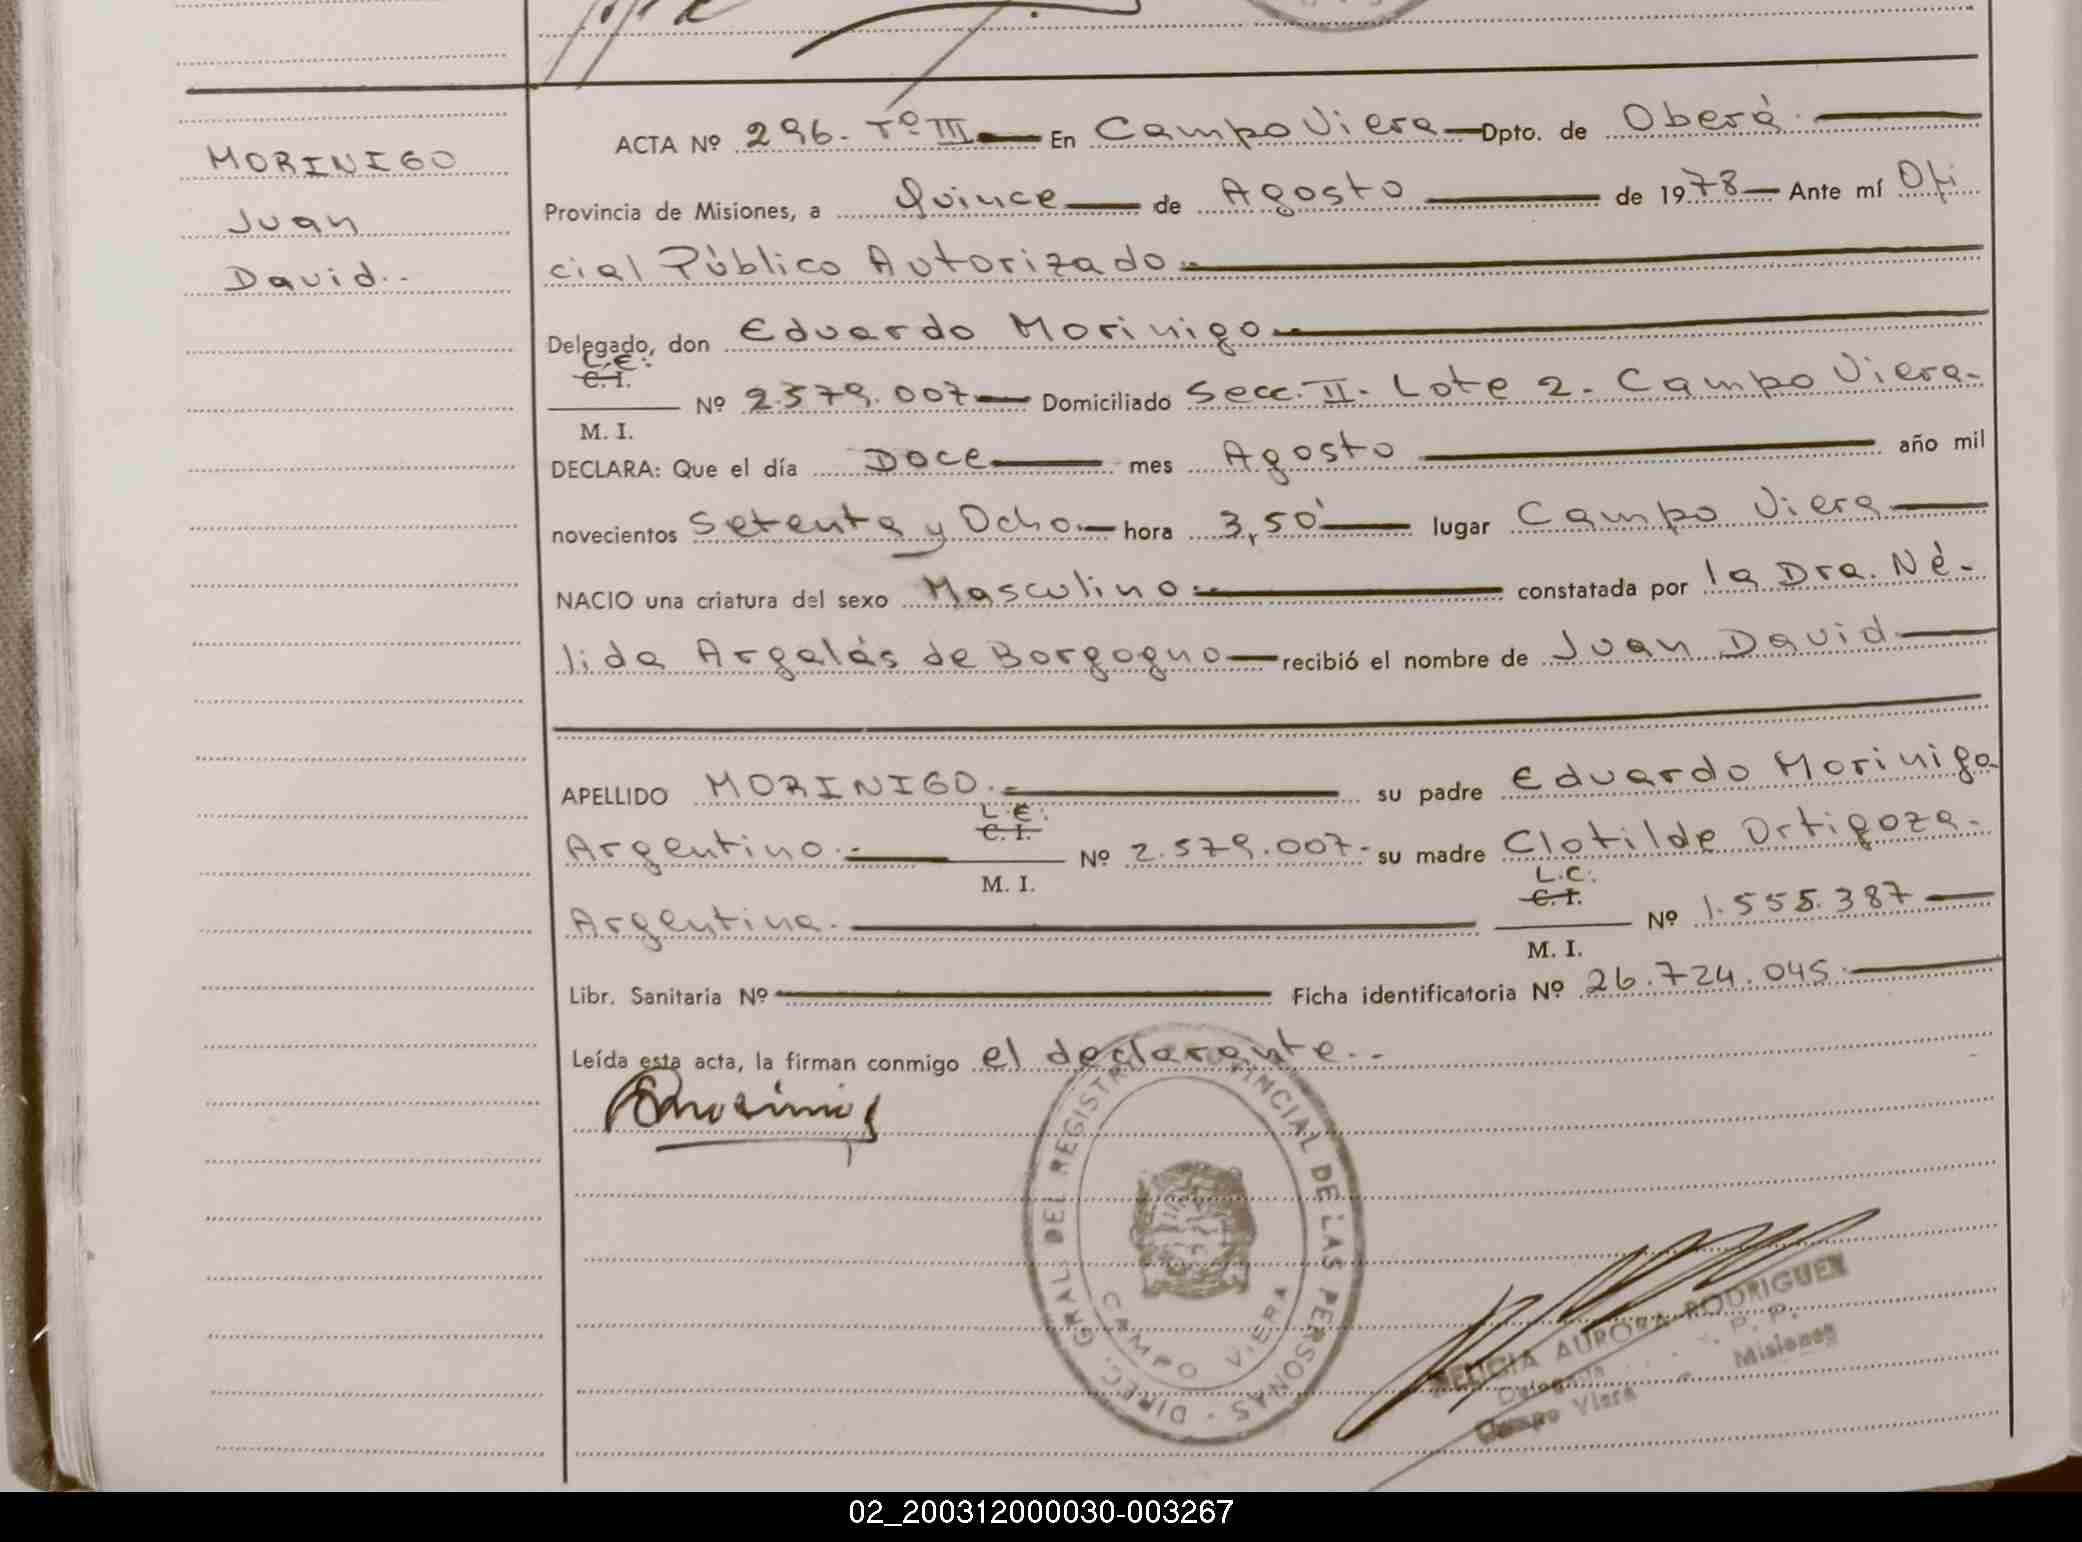 MORINIGO
Juan
David.-
ACTA Nº 296- Tº III En Campo Viera Dpto. de Oberá.
Provincia de Misiones, a Quince de Agosto de 1978 Ante mí Ofi
cial Público Autorizado.-
Delegado, don Eduardo Morinigo.-
L.E:
C. I.
Nº 2.579.007 Domiciliado Secc. II- Lote 2- Campo Viera-
M. I.
DECLARA: Que el día Doce mes Agosto año mil
novecientos Setenta y Ocho.- hora 3,50' lugar Campo Viera
NACIO una criatura del sexo Masculino.- constatada por la Dra. Né-
lida Argalás de Borgogno recibió el nombre de Juan David
APELLIDO MORINIGO.- su padre Eduardo Morinigo
L.E:
C. I.
Argentino.- Nº 2.579.007- su madre Clotilde Ortigoza-
M. I.
L.C:
C. I.
Argentina.- Nº 1.555.387
M. I.
Libr. Sanitaria Nº Ficha identificatoria Nº 26.724.045.-
Leída esta acta, la firman conmigo el declarante.-
DIREC. GRAL. DEL REGISTRO PROVINCIAL DE LAS PERSONAS
CAMPO VIERA
FELICIA AURORA RODRIGUEZ
Delegada P. P.
Campo Viera - Misiones
02_200312000030-003267